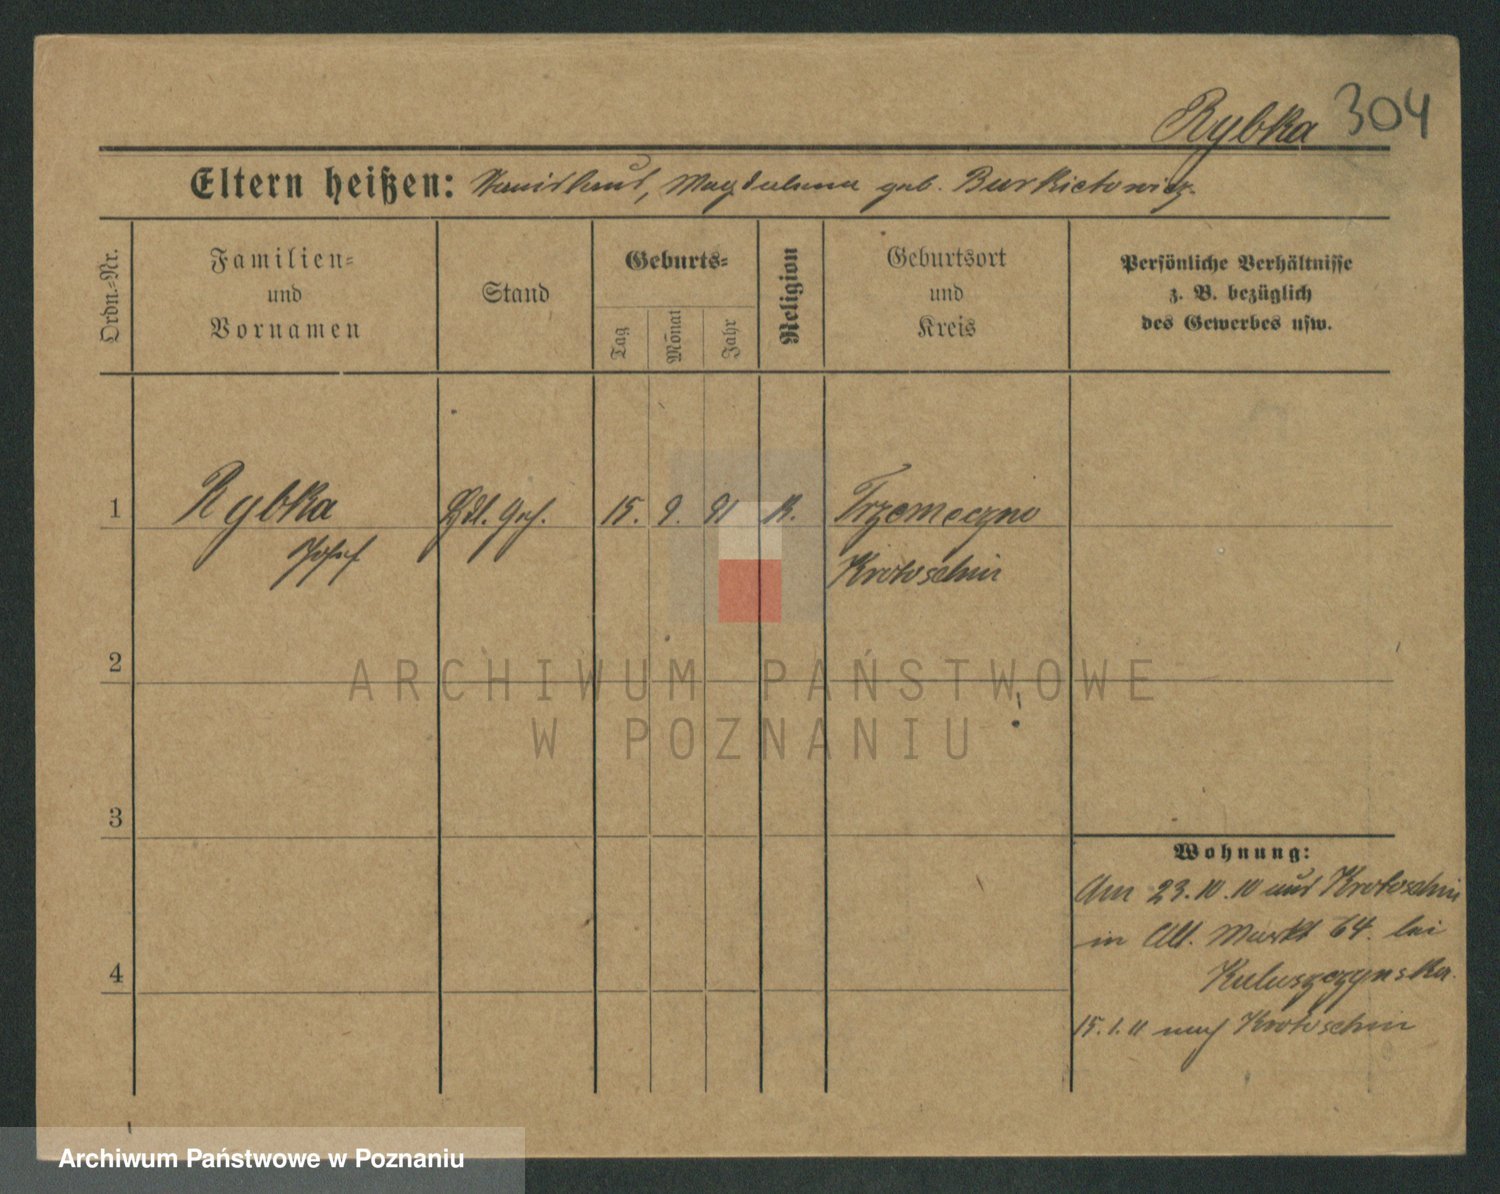 Rybka 304
Eltern heißen: Magdalena geb. Burkietowicz
Ordn.-Nr.
Familien-
und
Vornamen
Stand
Geburts-
Tag
Monat
Jahr
Religion
Geburtsort
und
Kreis
Persönliche Verhältnisse
z. B. bezüglich
des Gewerbes usw.
1 Rybka 15. 9. 91 K. Trzemeczno
Josef Krotoschin
2
3
4
Wohnung:
Am 23.10.10 aus Krotoschin
in Alt. Markt 64. bei
15.1.11 nach Krotoschin
ARCHIWUM PAŃSTWOWE
W POZNANIU
Archiwum Państwowe w Poznaniu